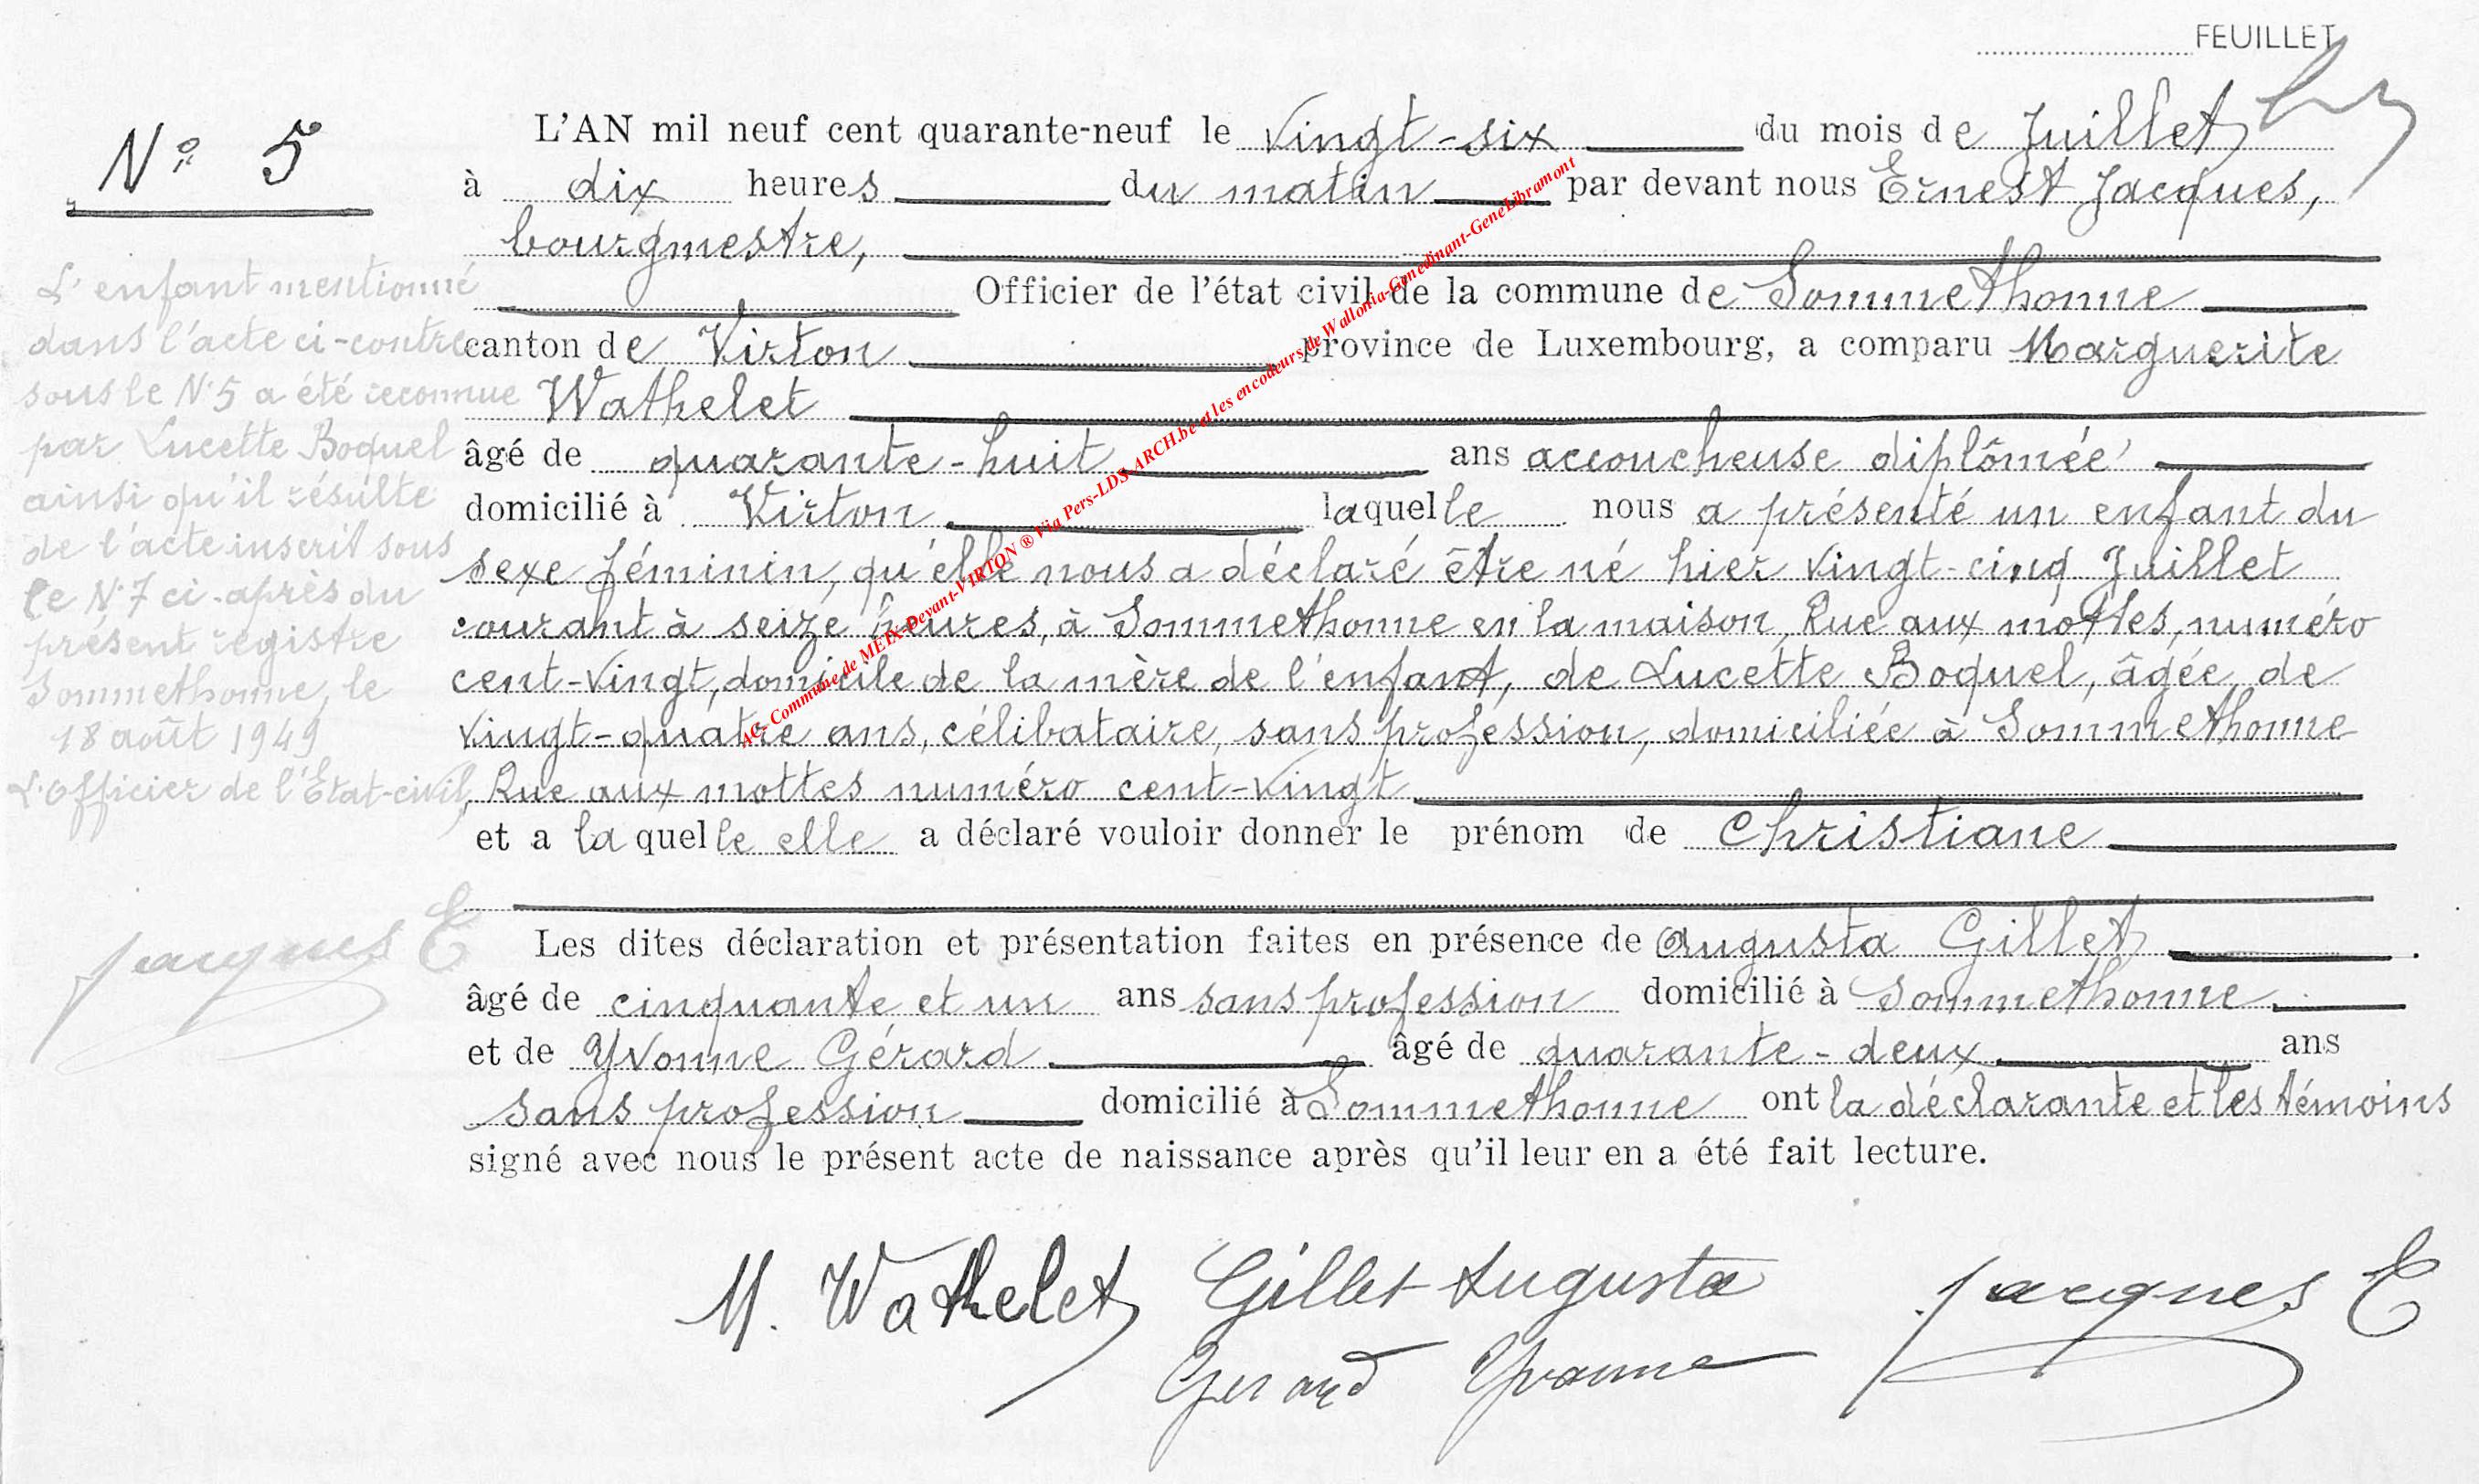 FEUILLET
N° 5
L'AN mil neuf cent quarante-neuf le vingt-six du mois de Juillet
à dix heures du matin par devant nous Ernest Jacques,
bourgmestre,
Officier de l'état civil de la commune de Sommethonne
canton de Virton province de Luxembourg, a comparu Marguerite
Wathelet
âgé de quarante-huit ans accoucheuse diplômée
domicilié à Virton laquelle nous a présenté un enfant du
sexe féminin, qu'elle nous a déclaré être né hier vingt-cinq Juillet
courant à seize heures, à Sommethonne en la maison, Rue aux mottes, numéro
cent-vingt, domicile de la mère de l'enfant, de Lucette Boquel, âgée de
vingt-quatre ans, célibataire, sans profession, domiciliée à Sommethonne
, Rue aux mottes numéro cent-vingt
et a laquelle elle a déclaré vouloir donner le prénom de Christiane
Les dites déclaration et présentation faites en présence de Augusta Gillet
âgé de cinquante et un ans sans profession domicilié à Sommethonne
et de Yvonne Gérard âgé de quarante-deux ans
sans profession domicilié à Sommethonne ont la déclarante et les témoins
signé avec nous le présent acte de naissance après qu'il leur en a été fait lecture.
M. Wathelet Gillet Augusta Jacques E
Gerard Yvonne
L'enfant mentionné
dans l'acte ci-contre
sous le N°5 a été reconnue
par Lucette Boquel
ainsi qu'il résulte
de l'acte inscrit sous
le N°7 ci-après du
présent registre
Sommethonne, le
18 août 1949
L'Officier de l'Etat-civil,
Jacques E
AC- Commune de MEIX-Devant-VIRTON ® Via Pers-LDS-ARCH.be et les encodeurs de Wallonia-Genedinant-GeneLibramont